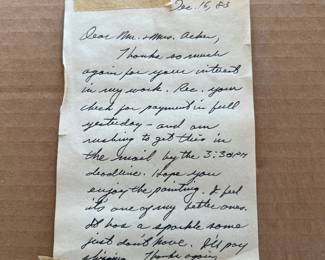 Dec. 15, 83
Dear Mr. & Mrs. Acker,
Thanks so much
again for your interest
in my work. Rec. your
check for payment in full
yesterday - and am
rushing to get this in
the mail by the 3:30 PM
deadline. Hope you
enjoy the painting. I feel
it's one of my better ones.
It has a sparkle some
just don't have. I'll pay
shipping. Thanks again,